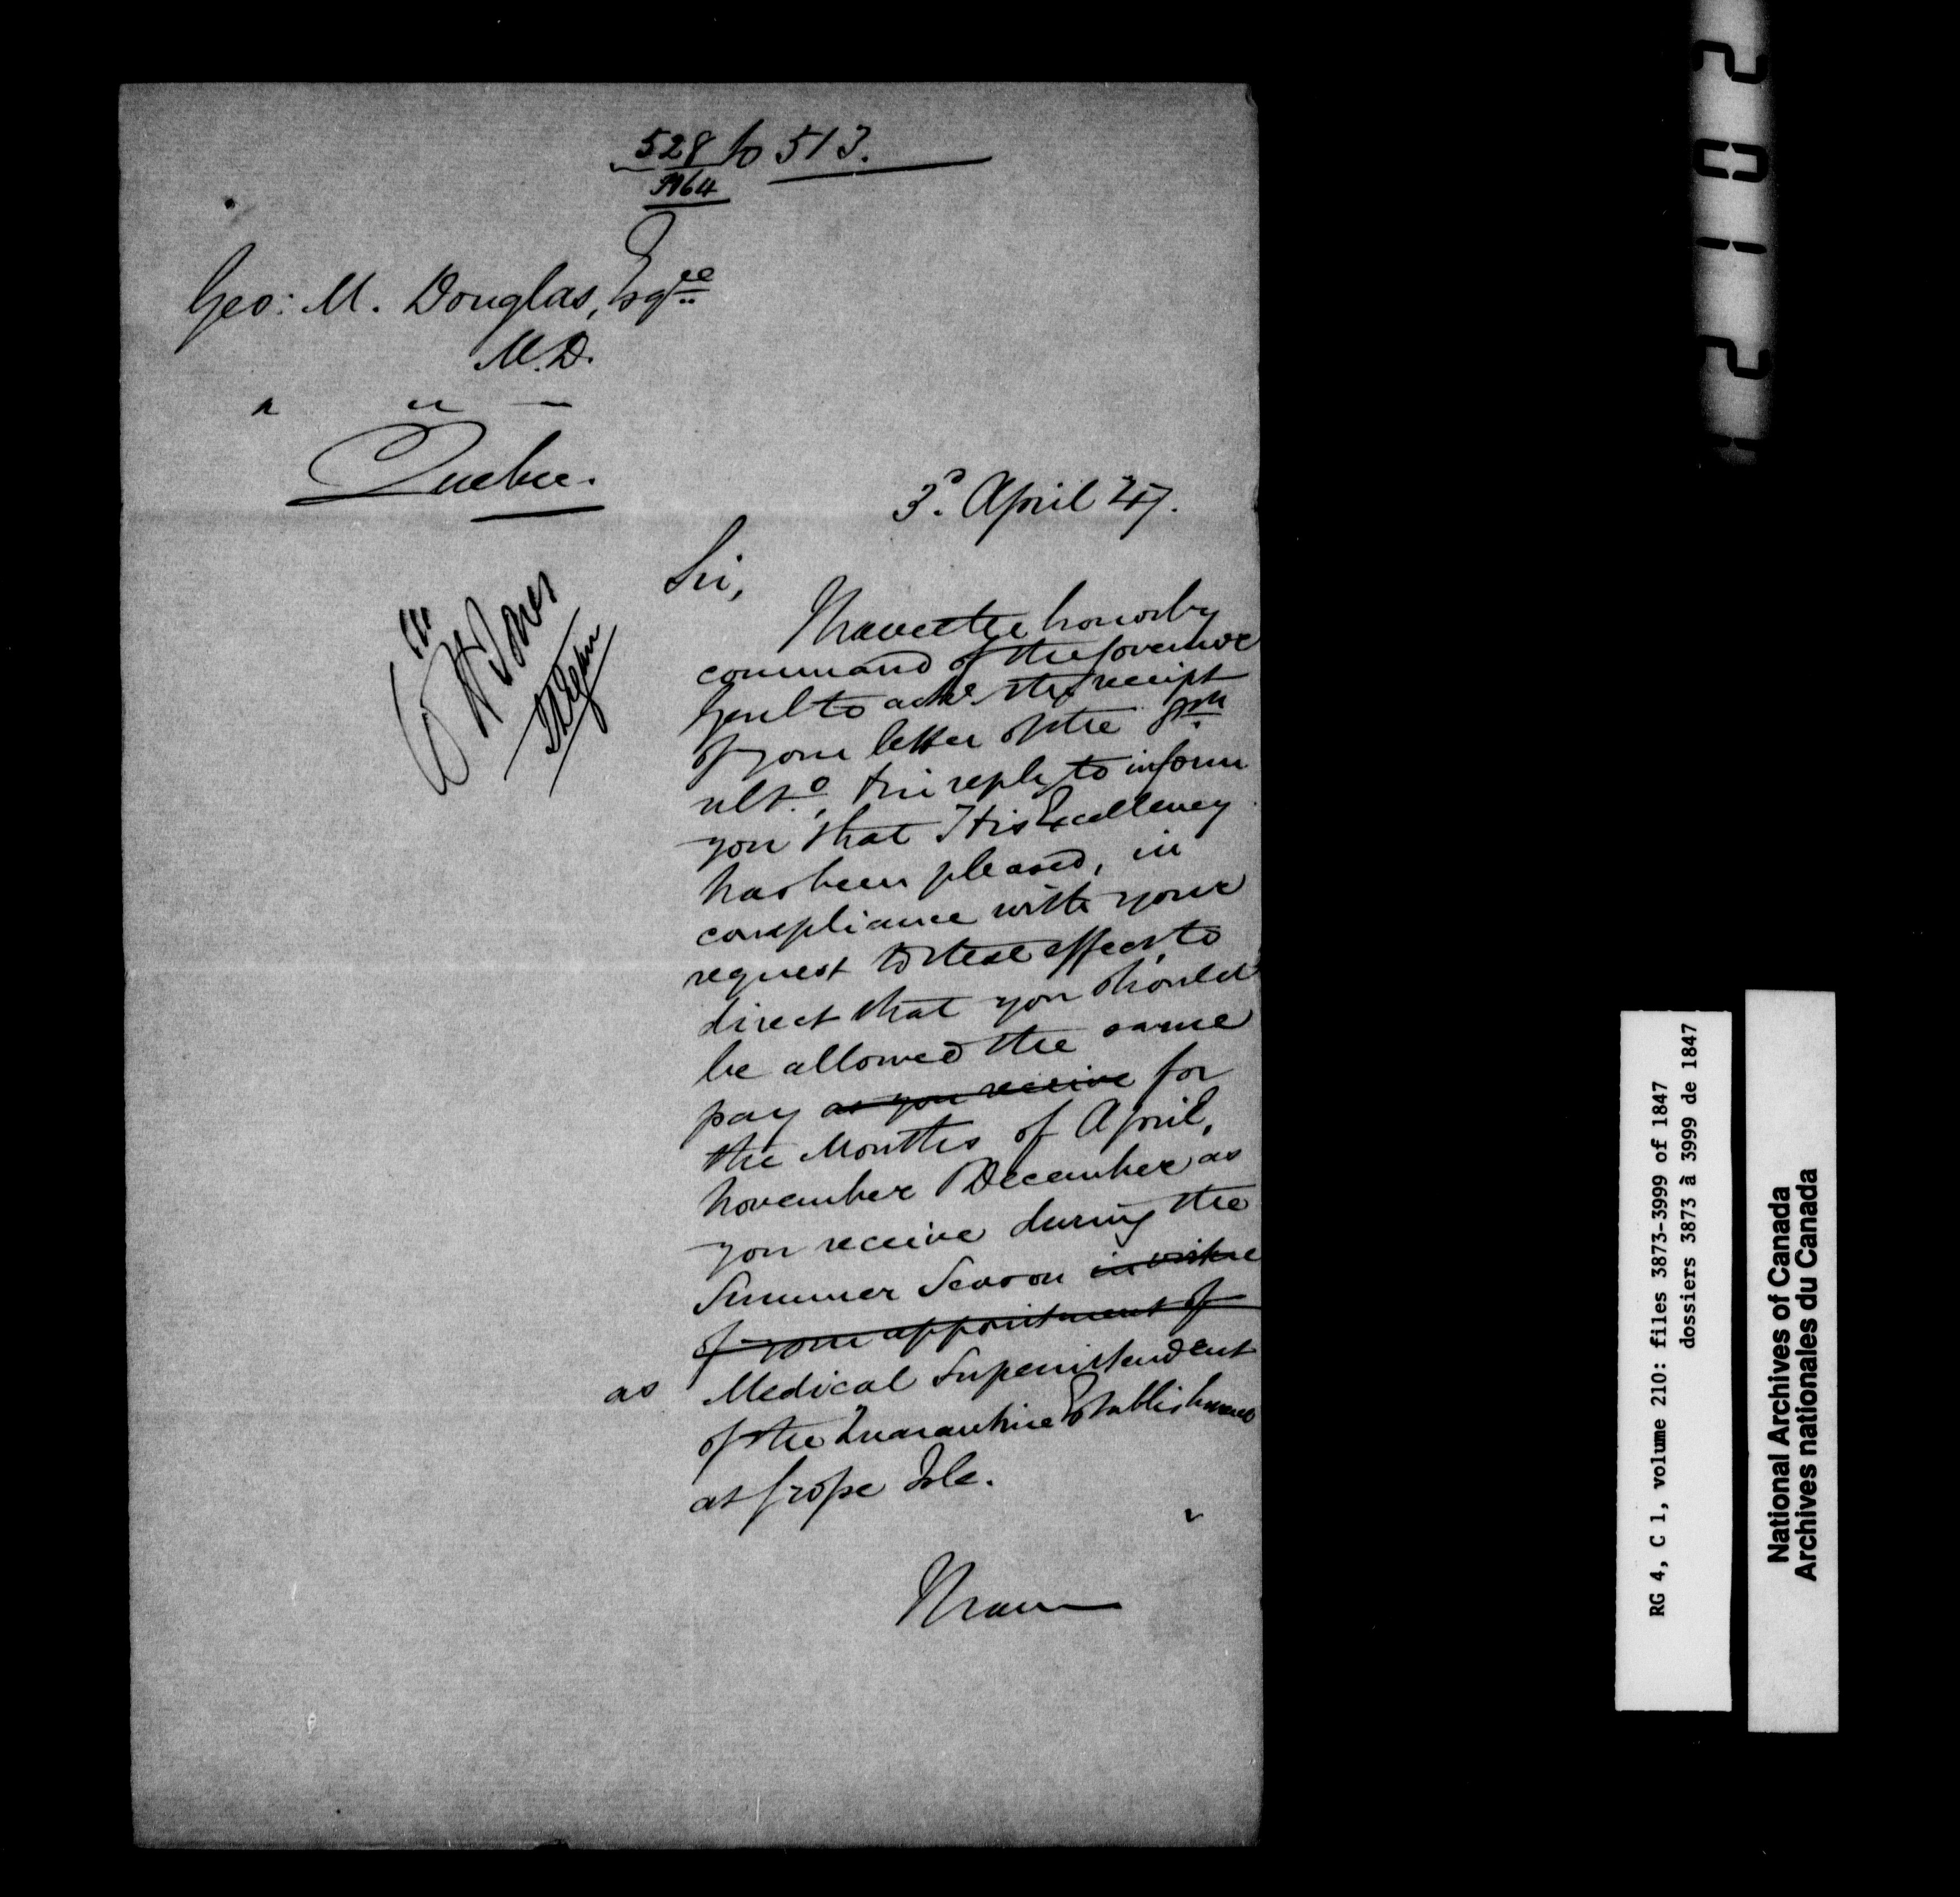 528 to 513.
3964
Geo: M. Douglas, Esqre
M.D.
Quebec.
3d. April 47.
Sir,
I have the honor by
command of the Governor
Genl to ackle. the receipt
of your letter of the
ulto., & in reply to inform
you that His Excellency
has been pleased, in
compliance with your
request to that effect, to
direct that you should
be allowed the same
pay as you receive for
the Months of April,
November & December as
you receive during the
Summer Season in virtue
of your appointment of
as Medical Superintendent
of the Quarantine Establishment
at Grosse Isle.
I have
2012
RG 4, C 1, volume 210: files 3873-3999 of 1847
dossiers 3873 à 3999 de 1847
National Archives of Canada
Archives nationales du Canada